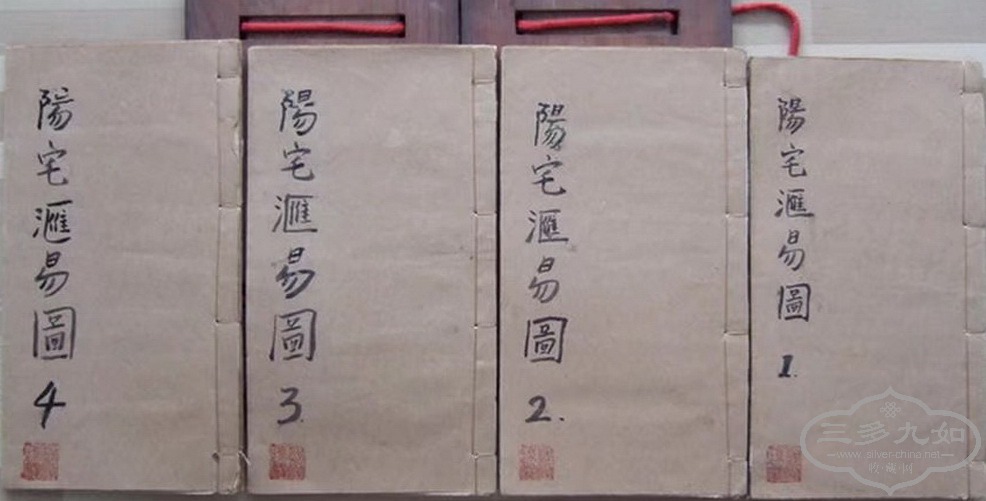 陽宅滙易圖
1.
陽宅滙易圖
2.
陽宅滙易圖
3.
陽宅滙易圖
4
三多九如
www.silver-china.net
收藏网